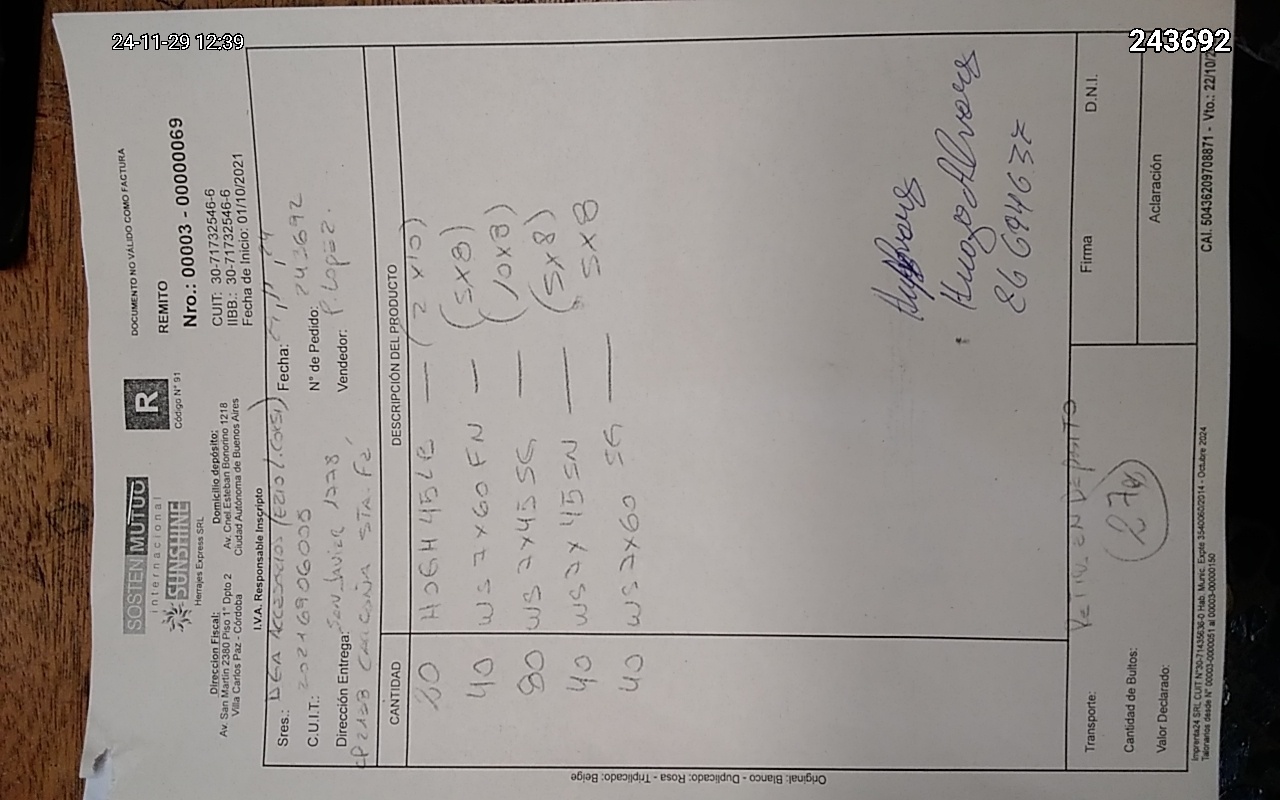 24-11-29 12:39
243692
SOSTEN MUTUO
internacional
SUNSHINE
Herrajes Express SRL
R
Código N° 91
DOCUMENTO NO VÁLIDO COMO FACTURA
REMITO
Nro.: 00003 - 00000069
CUIT: 30-71732546-6
IIBB.: 30-71732546-6
Fecha de Inicio: 01/10/2021
Direccion Fiscal:
Av. San Martin 2380 Piso 1° Dpto 2
Villa Carlos Paz - Córdoba
Domicilio depósito:
Av. Cnel. Esteban Bonorino 1218
Ciudad Autónoma de Buenos Aires
I.V.A. Responsable Inscripto
Sres.: DEA Accesorios
Fecha:
C.U.I.T.: 20216906005
N° de Pedido: 243692
Dirección Entrega: San Javier 1778
Vendedor: P. Lopez.
CP 2138 Sta. Fe,
CANTIDAD DESCRIPCIÓN DEL PRODUCTO
20 (2 x 10)
40 WS 2x60 FN — (5x8)
80 WS 2x45 SG — (10x8)
40 WS 2x45 SN — (5x8)
40 WS 2x60 SG — 5x8
Alvarez
86694637
Transporte: RETIRA EN DEPOSITO
Cantidad de Bultos:
Valor Declarado:
Firma D.N.I.
Aclaración
Imprenta24 SRL CUIT N°30-71435636-0 Hab. Munic. Expte 3540060/2014 - Octubre 2024
Talonarios desde N° 00003-00000051 al 00003-00000150
CAI. 50436209708871 - Vto.: 22/10/2
Original: Blanco - Duplicado: Rosa - Triplicado: Beige